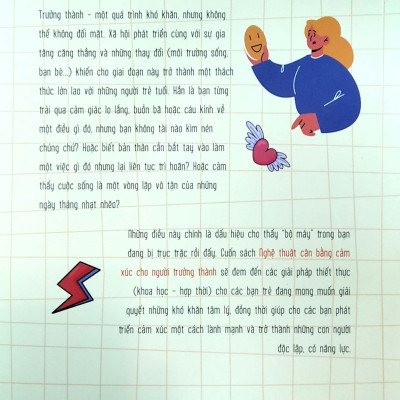 Trưởng thành - một quá trình khó khăn, nhưng không
thể không đối mặt. Xã hội phát triển cùng với sự gia
tăng căng thẳng và những thay đổi (môi trường sống,
bạn bè...) khiến cho giai đoạn này trở thành một thách
thức lớn lao với những người trẻ tuổi. Hẳn là bạn từng
trải qua cảm giác lo lắng, buồn bã hoặc cáu kỉnh về
một điều gì đó, nhưng bạn không tài nào kìm nén
chúng chứ? Hoặc biết bản thân cần bắt tay vào làm
một việc gì đó nhưng lại liên tục trì hoãn? Hoặc cảm
thấy cuộc sống là một vòng lặp vô tận của những
ngày tháng nhạt nhẽo?
Những điều này chính là dấu hiệu cho thấy "bộ máy" trong bạn
đang bị trục trặc rồi đấy. Cuốn sách Nghệ thuật cân bằng cảm
xúc cho người trưởng thành sẽ đem đến các giải pháp thiết thực
(khoa học - hợp thời) cho các bạn trẻ đang mong muốn giải
quyết những khó khăn tâm lý, đồng thời giúp cho các bạn phát
triển cảm xúc một cách lành mạnh và trở thành những con người
độc lập, có năng lực.